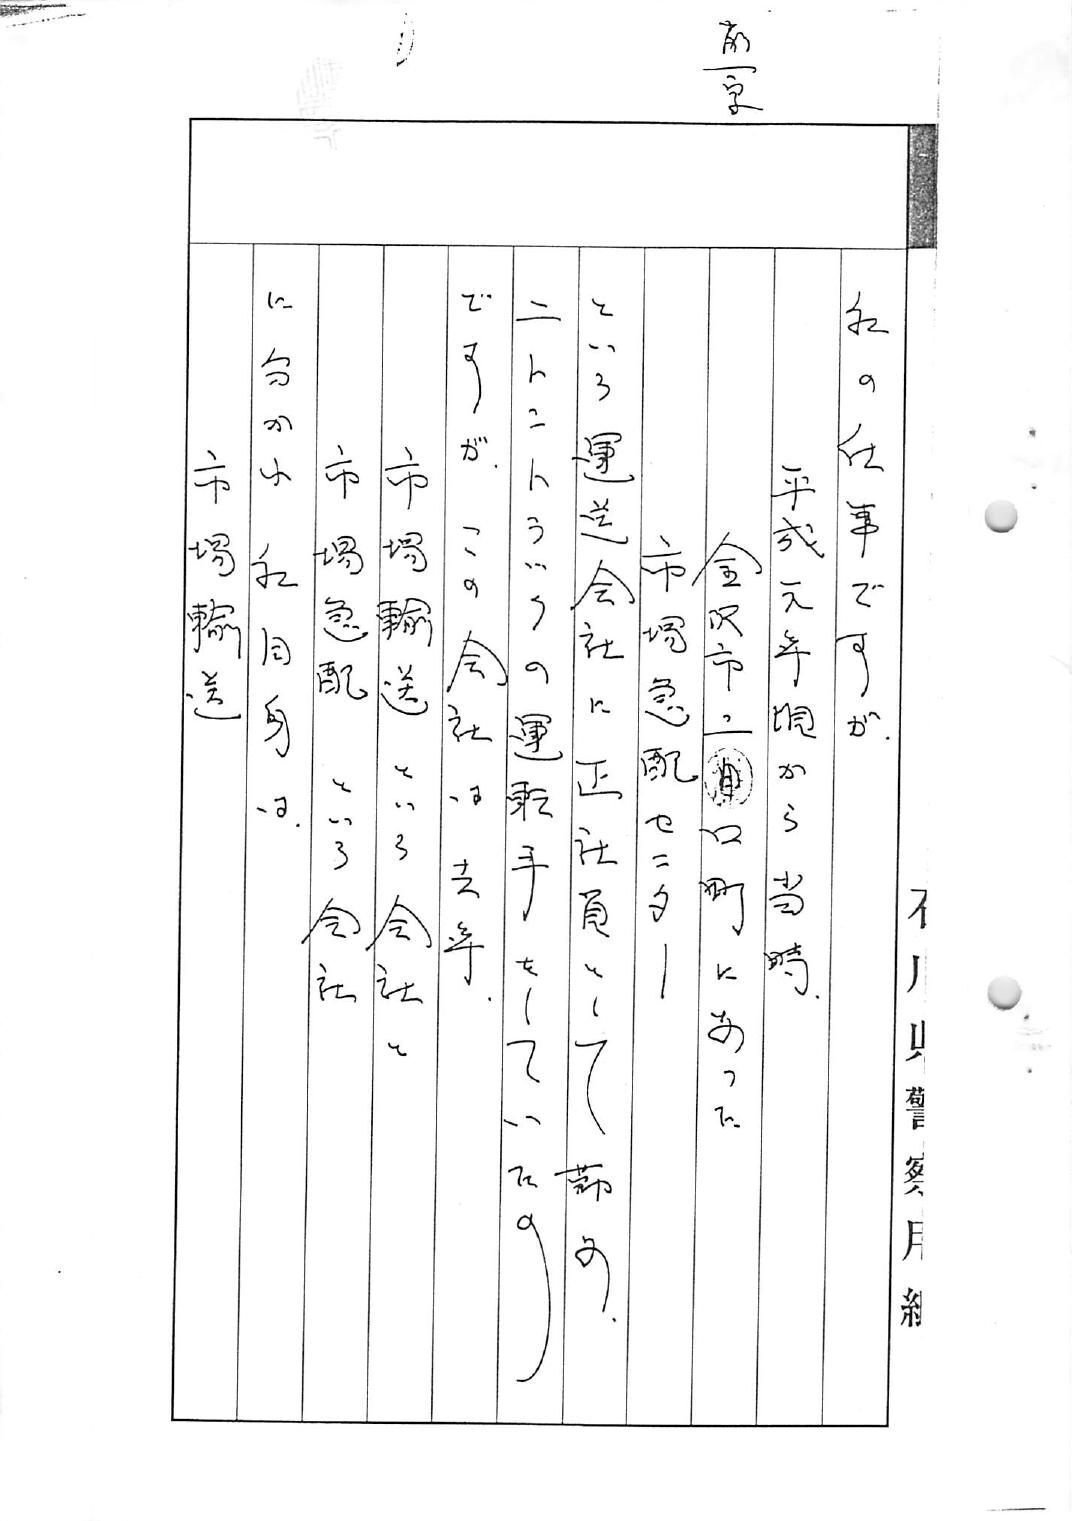 削一字
私の仕事ですが、
平成元年頃から当時、
金沢市二口町にあった
市場急配センター
という運送会社に正社員として勤め、
二トントラックの運転手をしていたの
ですが、この会社は去年、
市場輸送という会社と
市場急配という会社
に分かれ私自身は、
市場輸送
石川県警察用紙